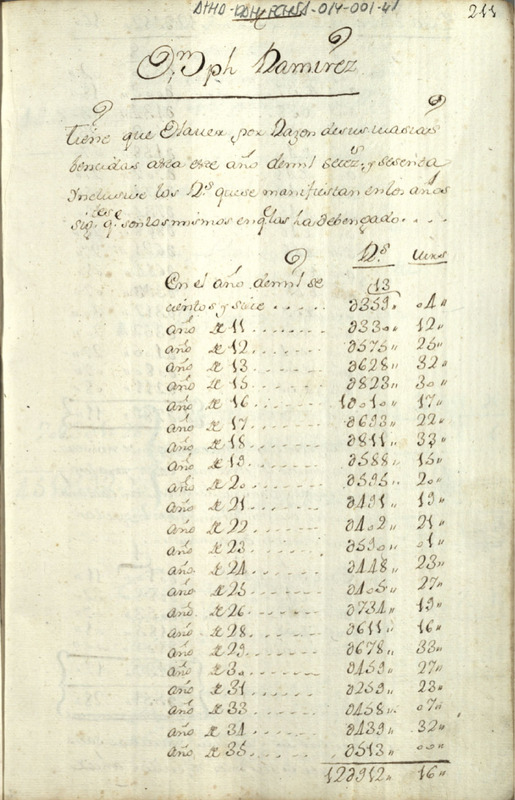 211
Dn Jph Ramirez
tiene que Haver por Razon de sus casas
bencidas asta este año de mil setezs. y sesenta
Inclusive los Rs. que se manifiestan en los años
sigtes. qe. son los mismos en qe las ha debengado. . . .
Rs. mrs
En el año de mil se 13
cientos y siete . . . . . ∂359" 04"
año de 11 . . . . . . . ∂330" 12"
año de 12 . . . . . . . ∂575" 25"
año de 13 . . . . . . . ∂628" 32"
año de 15 . . . . . . . ∂823" 30"
año de 16 . . . . . . . 1∂010" 17"
año de 17 . . . . . . . ∂693" 22"
año de 18 . . . . . . . ∂811" 33"
año de 19 . . . . . . . ∂588" 15"
año de 20 . . . . . . . ∂595" 20"
año de 21 . . . . . . . ∂491" 19"
año de 22 . . . . . . . ∂402" 21"
año de 23 . . . . . . . ∂590" 01"
año de 24 . . . . . . . ∂448" 23"
año de 25 . . . . . . . ∂405" 27"
año de 26 . . . . . . . ∂734" 19"
año de 28 . . . . . . . ∂611" 16"
año de 29 . . . . . . . ∂678" 33"
año de 30 . . . . . . . ∂459" 27"
año de 31 . . . . . . . ∂259" 23"
año de 33 . . . . . . . ∂458" 07"
año de 34 . . . . . . . ∂439" 32"
año de 35 . . . . . . . ∂513" 00"
12∂912" 16"